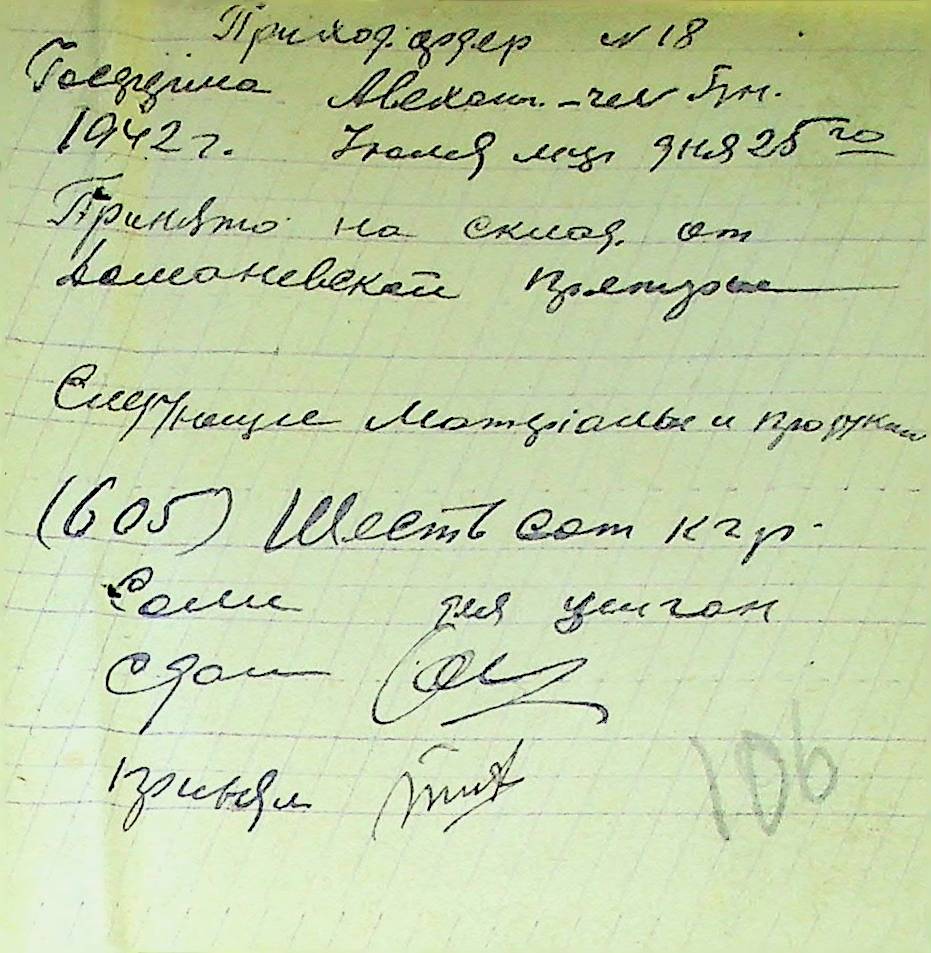 Приход. ордер N 18
1942 г. Июля мця дня 25го
Принято на склад. от
Доманевской претуры
Следующие материалы и продукты
(605) Шесть сот кгр.
Соли для цыган
Сдал
принял
106